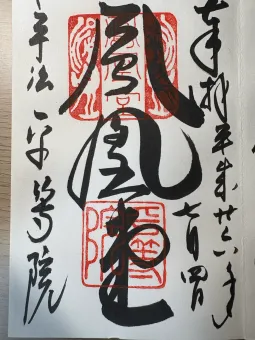 奉拝 平成廿六年
七月四日
鳳凰堂
平等院